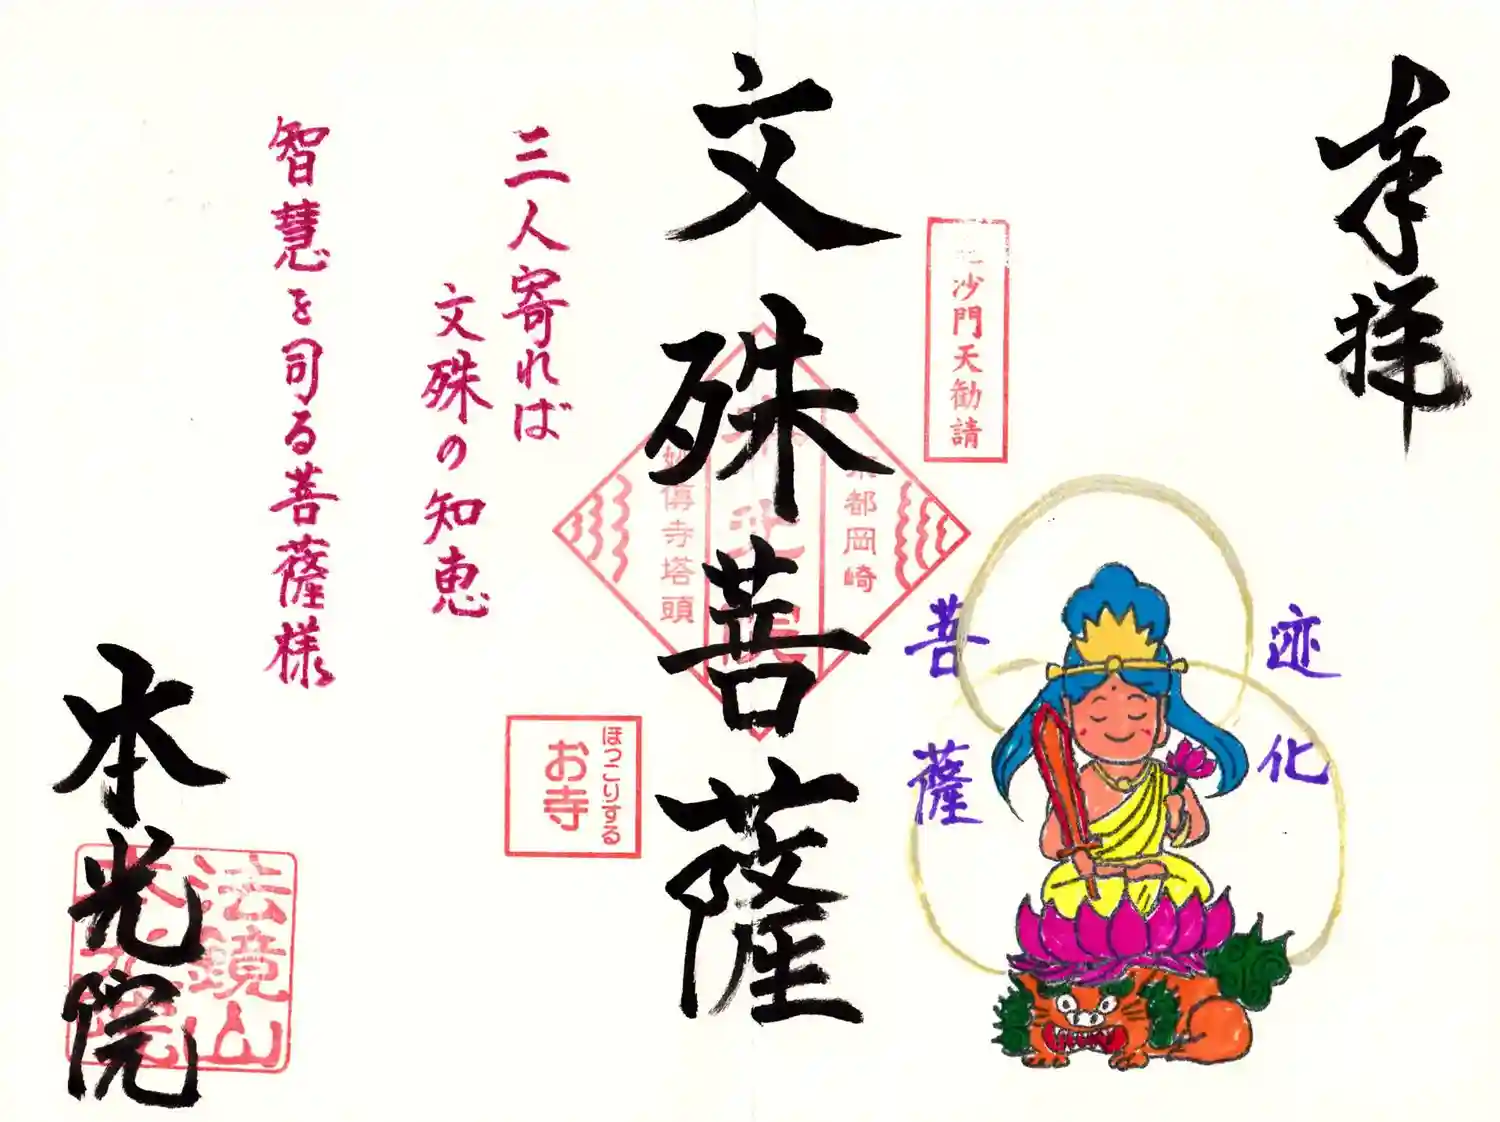 奉拝
沙門天勧請
迹化
菩薩
文殊菩薩
京都岡崎
妙傳寺塔頭
ほっこりする
お寺
三人寄れば
文殊の知恵
智慧を司る菩薩様
本光院
法鏡山